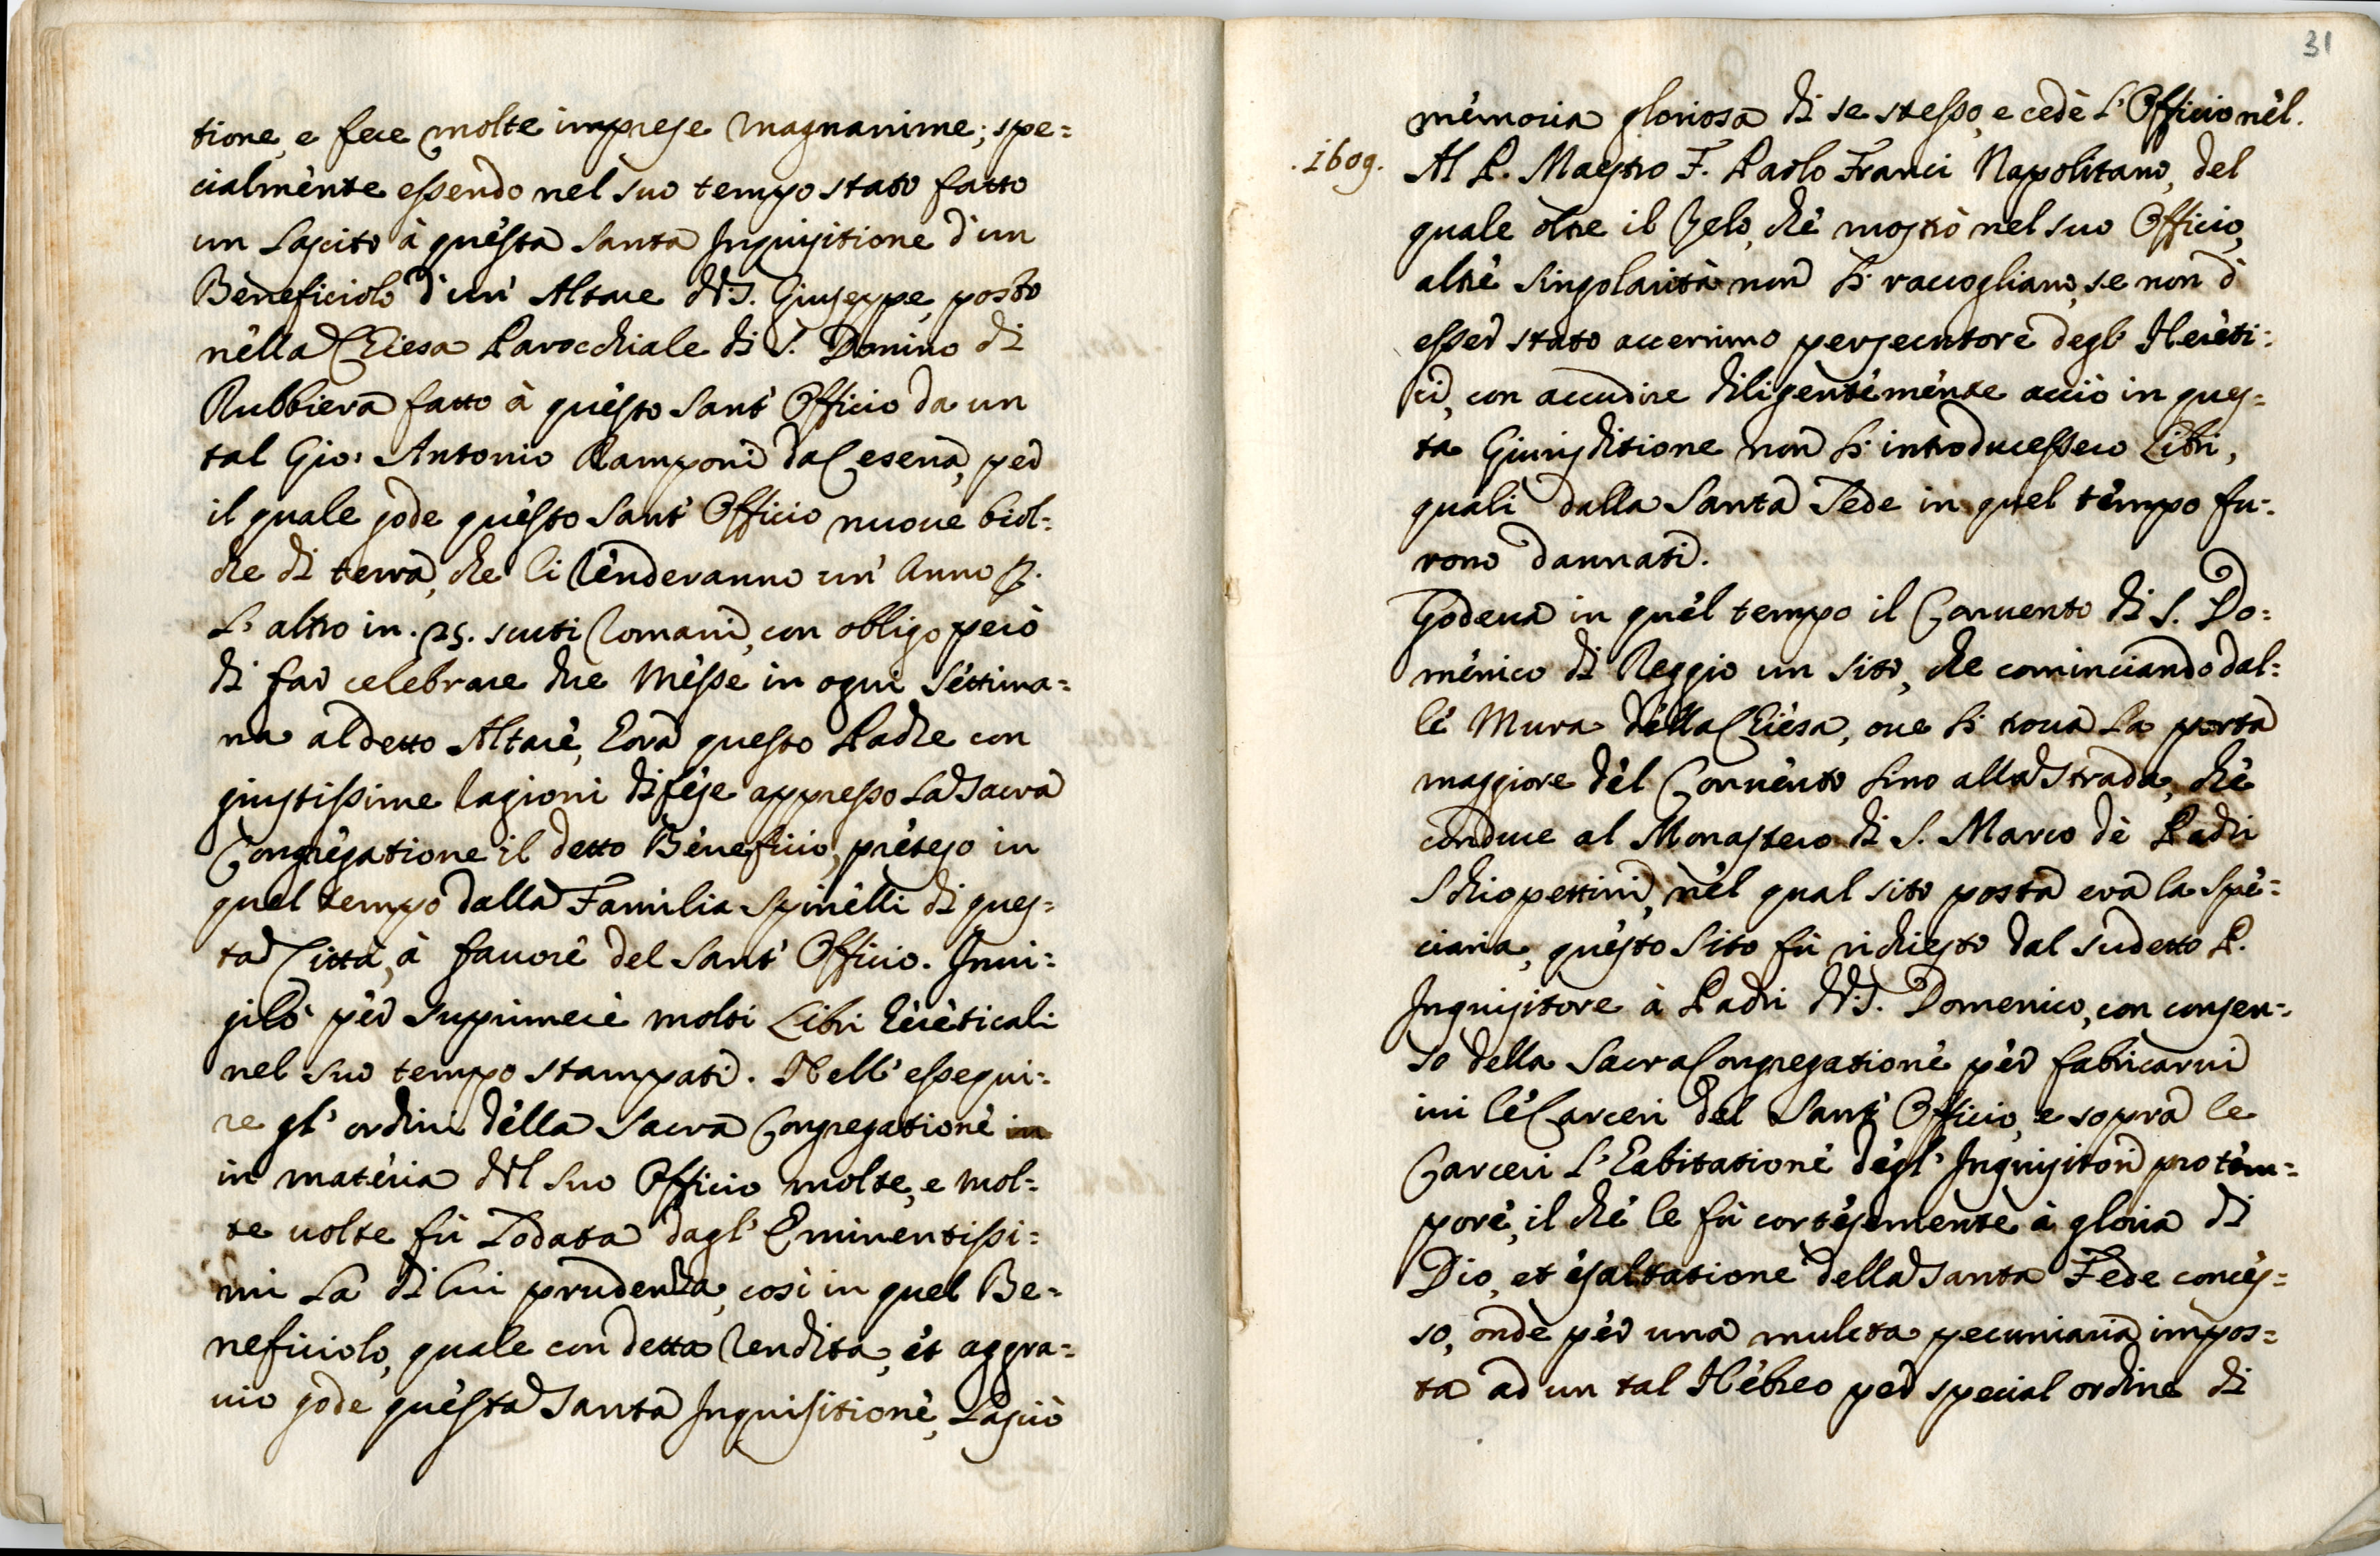 tione, e fece molte imprese magnanime; spe=
cialmènte essendo nel suo tempo stato fatto
un Lascito à quèsta Santa Inquisitione d'un
Bèneficiolo d'un' Altare di S. Giuseppe, posto
nèlla Chiesa Parocchiale di S. Donino di
Rubbiera fatto à quèsto Sant' Officio da un
tal Gio: Antonio Ramponi da Cesena, per
il quale gode quèsto Sant' Officio nuoue biol=
che di terra, che li renderanno un' Anno p.
L' altro in .25. scuti Romani, con obligo però
di far celebrare due Mèsse in ogni Sèttima=
na al detto Altarè, Hora questo Padre con
giustissime ragioni difèse appresso La Sacra
Congrègatione il detto Bèneficio, prèteso in
quel tempo dalla Familia Spinèlli di ques=
ta Città, à fauorè del Sant' Officio. Inui=
gilò pèr suprimerè molti Libri hèrèticali
nel suo tempo stampati. Nell' essegui=
re gl' ordini dèlla Sacra Congregationè in
in matèria del suo Officio molte, e mol=
te uolte fù Lodata dagl' Eminentissi=
mi La di lui prudenza, così in quel Be=
neficiolo, quale con detta rendita, èt aggra=
uio gode quèsta Santa Inquisitionè, Lasciò
31
mèmoria gloriosa di se stesso, e cedè L' Officio nèl.
.1609. Al P. Maestro F. Paolo Franci Napolitano, del
quale oltre il Zelo, chè mostrò nel suo Officio,
altrè singolarità non si raccogliano, se non d'
esser stato accerrimo persecutorè degl' Herèti=
ci, con accudire diligentèmènte acciò in ques=
ta Giurisditione non si introducessero Libri,
quali dalla Santa Sede in quel tèmpo fu=
rono dannati.
Godeua in quèl tempo il Conuento di S. Do=
mènico di Reggio un sito, che cominciando dal=
lè Mura dèlla Chièsa, oue si troua La porta
maggiore dèl Conuènto sino alla strada, chè
conduce al Monastero di S. Marco dè Padri
Schiopettini, nèl qual sito posta era la Spè=
ciaria, quèsto sito fù richiesto dal sudetto P.
Inquisitore à Padri di S. Domenico, con consen=
so della Sacra Congregationè pèr fabricarui
iui lè Carceri del Sant' Officio, e sopra le
Carceri L' habitationè dègl' Inquisitori pro tèm=
porè, il chè le fù cortèsemèntè à gloria di
Dio, et èsaltatione della Santa Fede concès=
so, ondè pèr una mulcta pecuniaria impos=
ta ad un tal Hèbreo per special ordine di